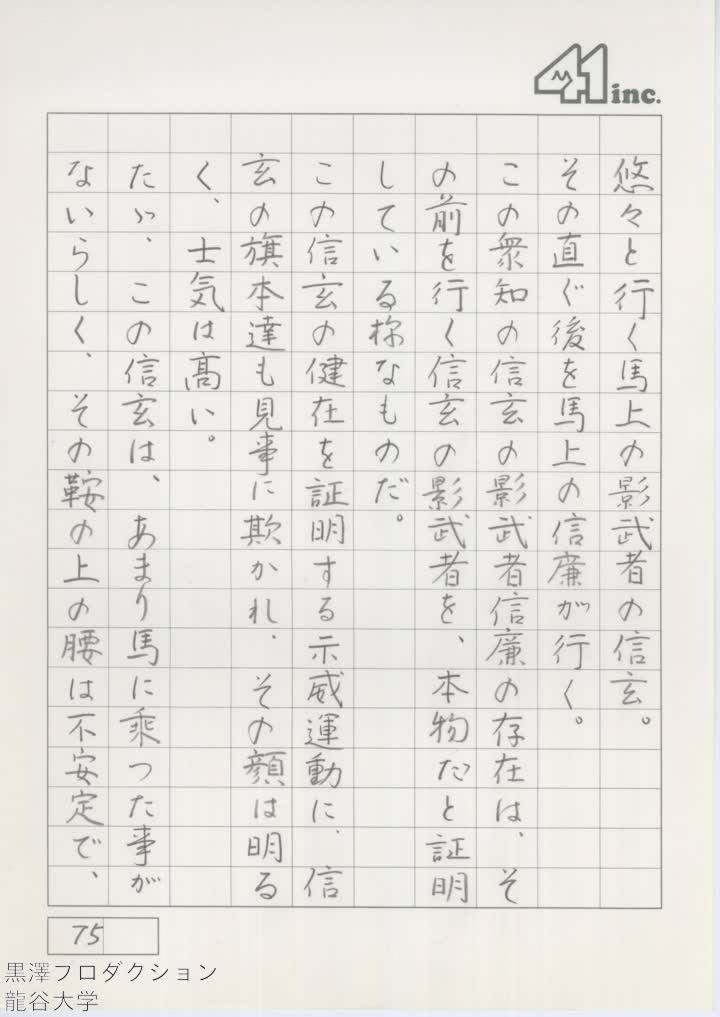 41 inc.
悠々と行く馬上の影武者の信玄。
その直ぐ後を馬上の信廉が行く。
この衆知の信玄の影武者信廉の存在は、そ
の前を行く信玄の影武者を、本物だと証明
している様なものだ。
この信玄の健在を証明する示威運動に、信
玄の旗本達も見事に欺かれ、その顔は明る
く、士気は髙い。
たゞ、この信玄は、あまり馬に乗った事が
ないらしく、その鞍の上の腰は不安定で、
75
黒澤フロダクション
龍谷大学